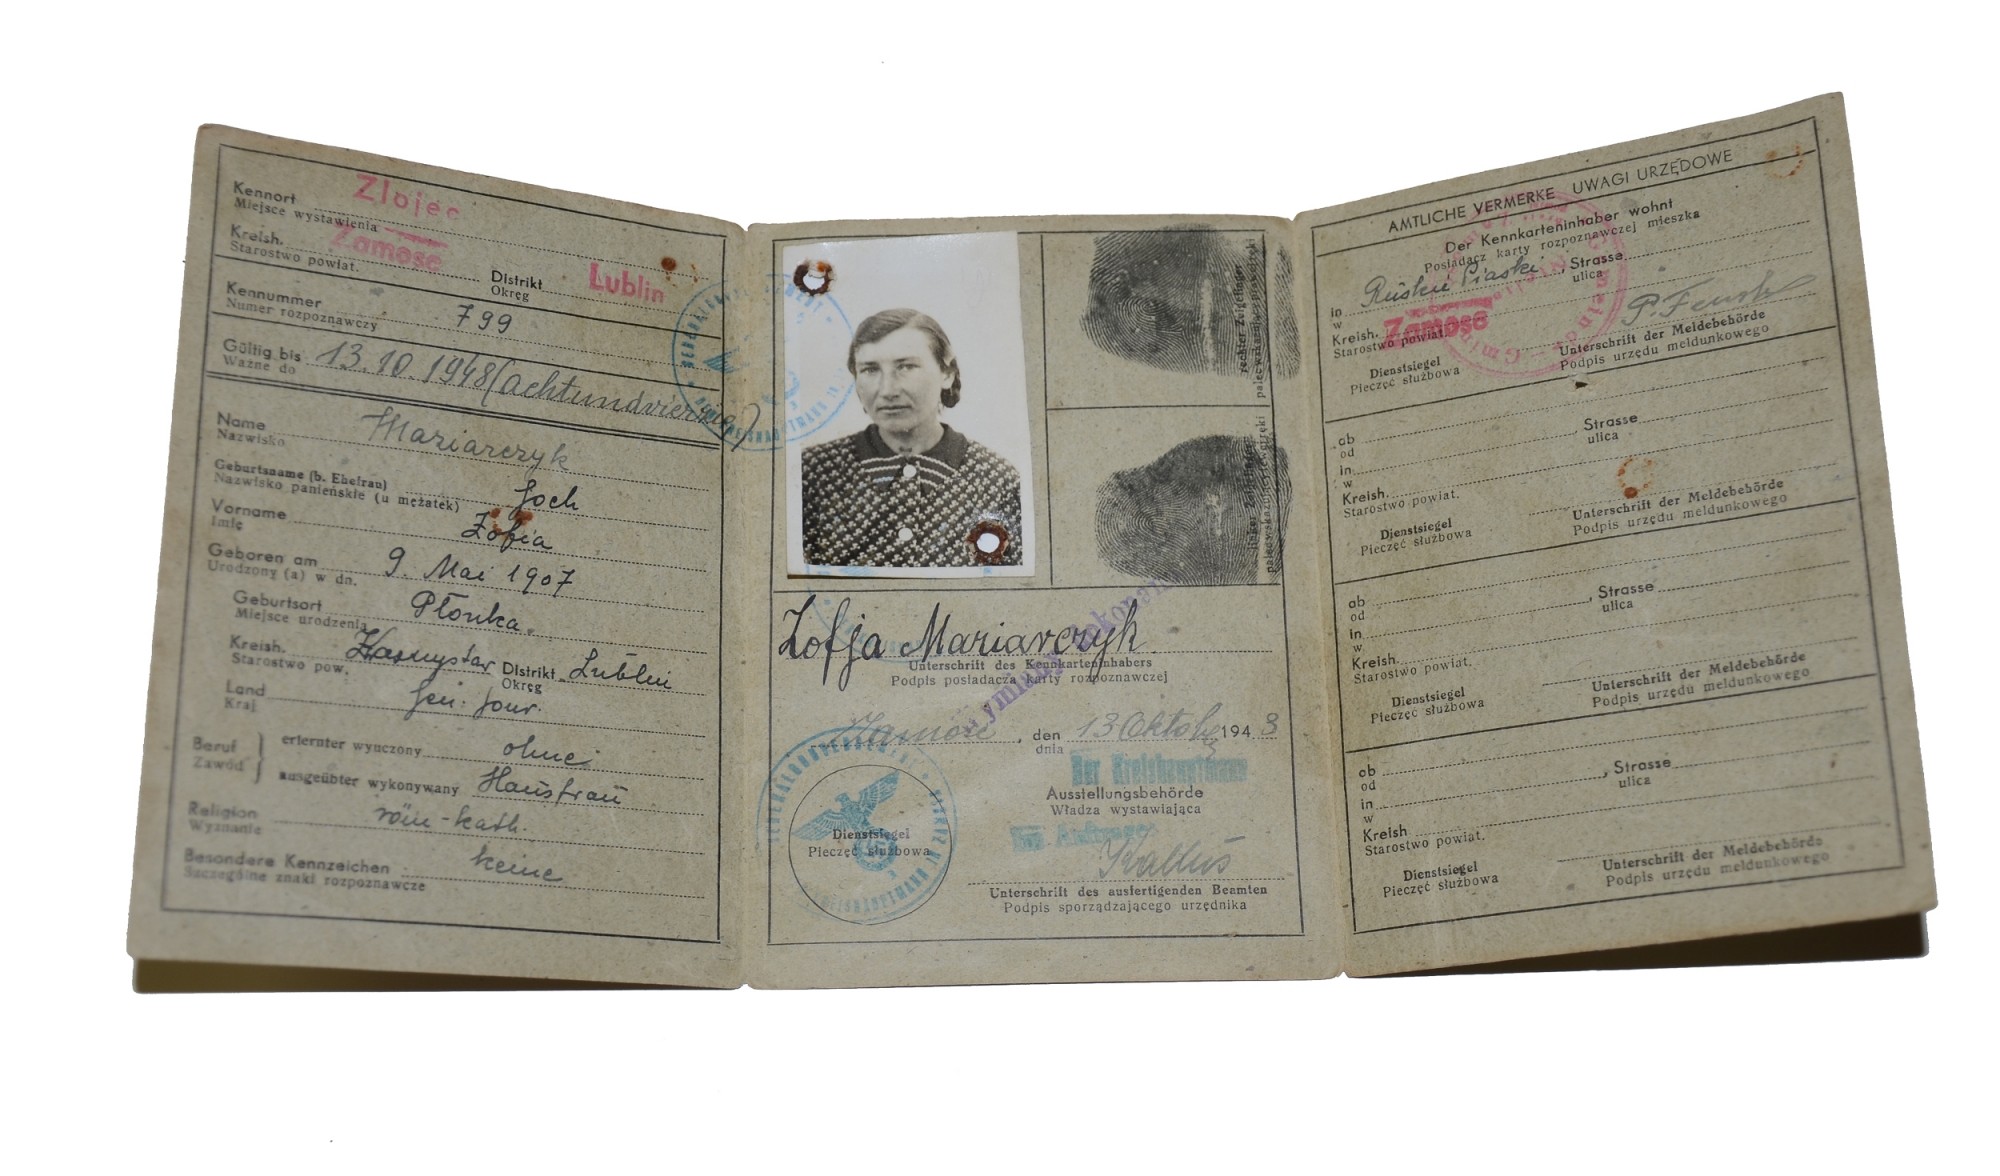 Kennort Zlojec
Miejsce wystawienia
Kreish. Zamość Distrikt Lublin
Starostwo powiat. Okręg
Kennummer 799
Numer rozpoznawczy
Gültig bis 13.10.1948 (achtundvierzig)
Ważne do
Name Mariarczyk
Nazwisko
Geburtsname (b. Ehefrau) Joch
Nazwisko panieńskie (u mężatek)
Vorname Zofia
Imię
Geboren am 9. Mai 1907
Urodzony (a) w dn.
Geburtsort Płonka
Miejsce urodzenia
Kreish. Krasnystaw Distrikt Lublin
Starostwo pow. Okręg
Land Gen. Gouv.
Kraj
Beruf erlernter wyuczony ohne
Zawód ausgeübter wykonywany Hausfrau
Religion röm-kath.
Wyznanie
Besondere Kennzeichen keine
Szczególne znaki rozpoznawcze
rechter Zeigefinger
palec wskazujący prawej ręki
linker Zeigefinger
palec wskazujący lewej ręki
Zofja Mariarczyk
Unterschrift des Kennkarteninhabers
Podpis posiadacza karty rozpoznawczej
Zamość, den 13 Oktober 1943
dnia
Der Kreishauptmann
Ausstellungsbehörde
Władza wystawiająca
Im Auftrage
Dienstsiegel
Pieczęć służbowa
Unterschrift des ausfertigenden Beamten
Podpis sporządzającego urzędnika
AMTLICHE VERMERKE UWAGI URZĘDOWE
Der Kennkarteninhaber wohnt
Posiadacz karty rozpoznawczej mieszka
in Ruskie Piaski, Strasse
w ulica
Kreish. Zamość
Starostwo powiat.
Dienstsiegel Unterschrift der Meldebehörde
Pieczęć służbowa Podpis urzędu meldunkowego
ab , Strasse
od ulica
in
w
Kreish.
Starostwo powiat.
Dienstsiegel Unterschrift der Meldebehörde
Pieczęć służbowa Podpis urzędu meldunkowego
ab , Strasse
od ulica
in
w
Kreish.
Starostwo powiat.
Dienstsiegel Unterschrift der Meldebehörde
Pieczęć służbowa Podpis urzędu meldunkowego
ab , Strasse
od ulica
in
w
Kreish.
Starostwo powiat.
Dienstsiegel Unterschrift der Meldebehörde
Pieczęć służbowa Podpis urzędu meldunkowego